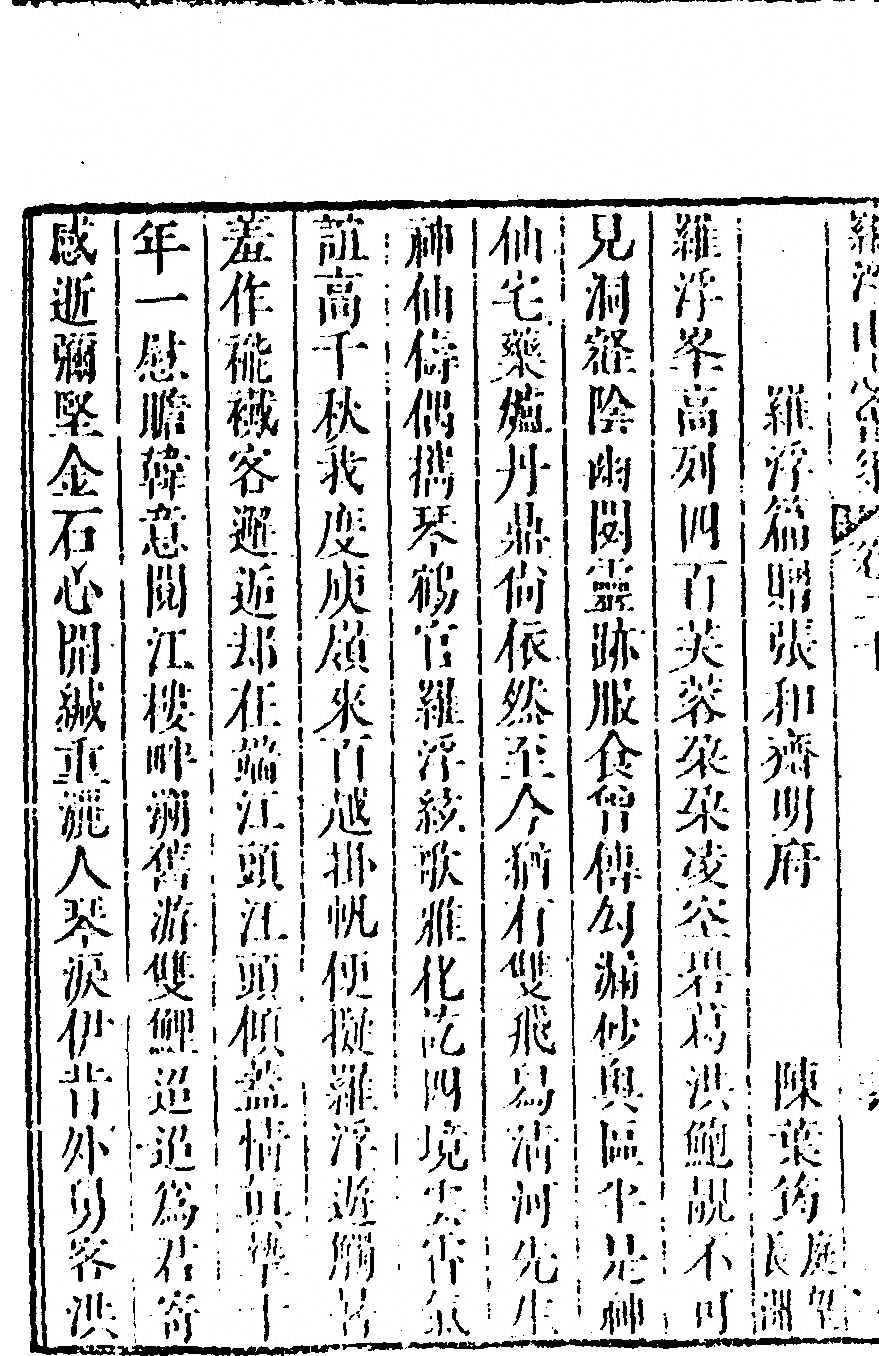 羅浮山志會編 卷二十
羅浮篇贈張和齋明府 陳葉筠
羅浮峯高列四百芙蓉朶朶凌空碧葛洪鮑靚不可
見洞壑陰幽閟靈跡服食曾傳勾漏砂奥區半是神
仙宅藥爐丹鼎尙依然至今猶有雙飛舄淸河先生
神仙儔偶攜琴鶴官羅浮絃歌雅化訖四境雲霄氣
誼高千秋我度庾嶺來百越掛帆便擬羅浮遊觸暑
羞作褦襶客邂逅却在端江頭江頭傾蓋情眞摯十
年一慰瞻韓意閱江樓畔溯舊游雙鯉迢迢爲君寄
感逝彌堅金石心開緘重灑人琴淚伊昔外舅客洪